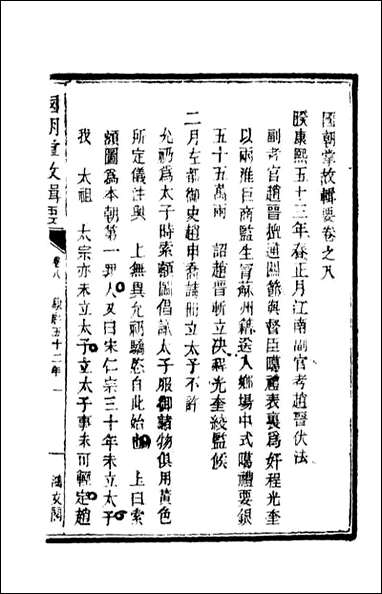 國朝掌故輯要卷之八
睽康熙五十三年春正月江南副官考趙晉伏法
副考官趙晉擅通關節與督臣噶禮表裏爲奸程光奎
以兩淮巨商監生冐蘇州籍送入鄉場中式噶禮要銀
五十五萬兩 詔趙晉斬立决程光奎絞監候
二月左都御史趙申喬請冊立太子不許
允礽爲太子時索額圖倡議太子服御諸物俱用黃色
所定儀注與 上無異允礽驕怨自此始也 上曰索
額圖爲本朝第一罪人又曰宋仁宗三十年未立太子
我 太祖 太宗亦未立太子立太子事未可輕定趙
國朝掌故輯要
卷八
康熙五十二年
一
鴻文閣